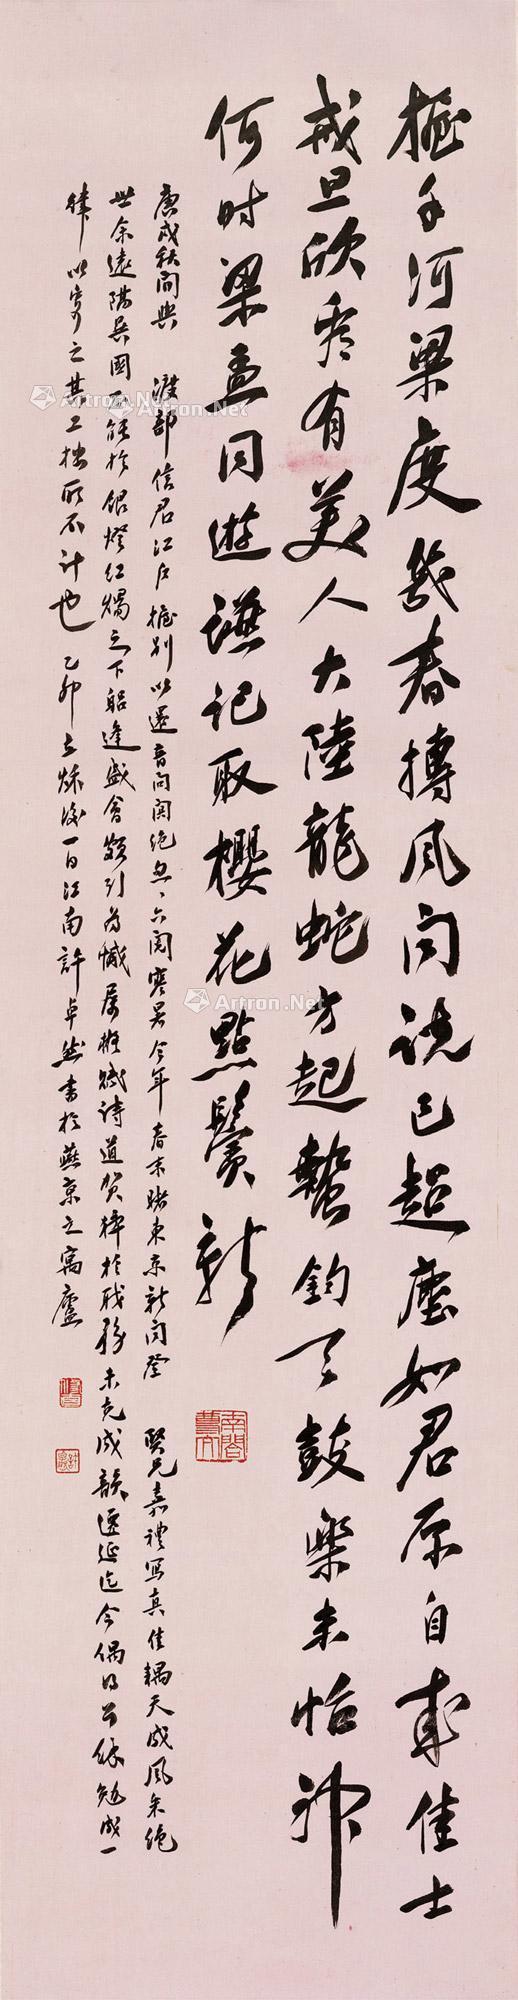 握手河梁度几春搏风闻说已超尘如君原自求佳士
戒旦欣看有美人大陆龙蛇方起蛰钧天鼓乐未怡神
何时梁孟同游谯记取樱花点鬓新
庚戌秋间与 渡部信君江户握别以还音问阔绝忽忽六阅寒暑今年春末睹东京新闻登 贤兄嘉礼写真佳耦天成风采绝
世余远隔异国不能于银灯红烛之下躬逢盛会颇引为憾屡拟赋诗道贺牵于职务未克成韵迁延迄今偶得公余勉成一
律以寄之其工拙所不计也 乙卯立秋后一日江南许卓然书于燕京之寓庐
Artron.Net